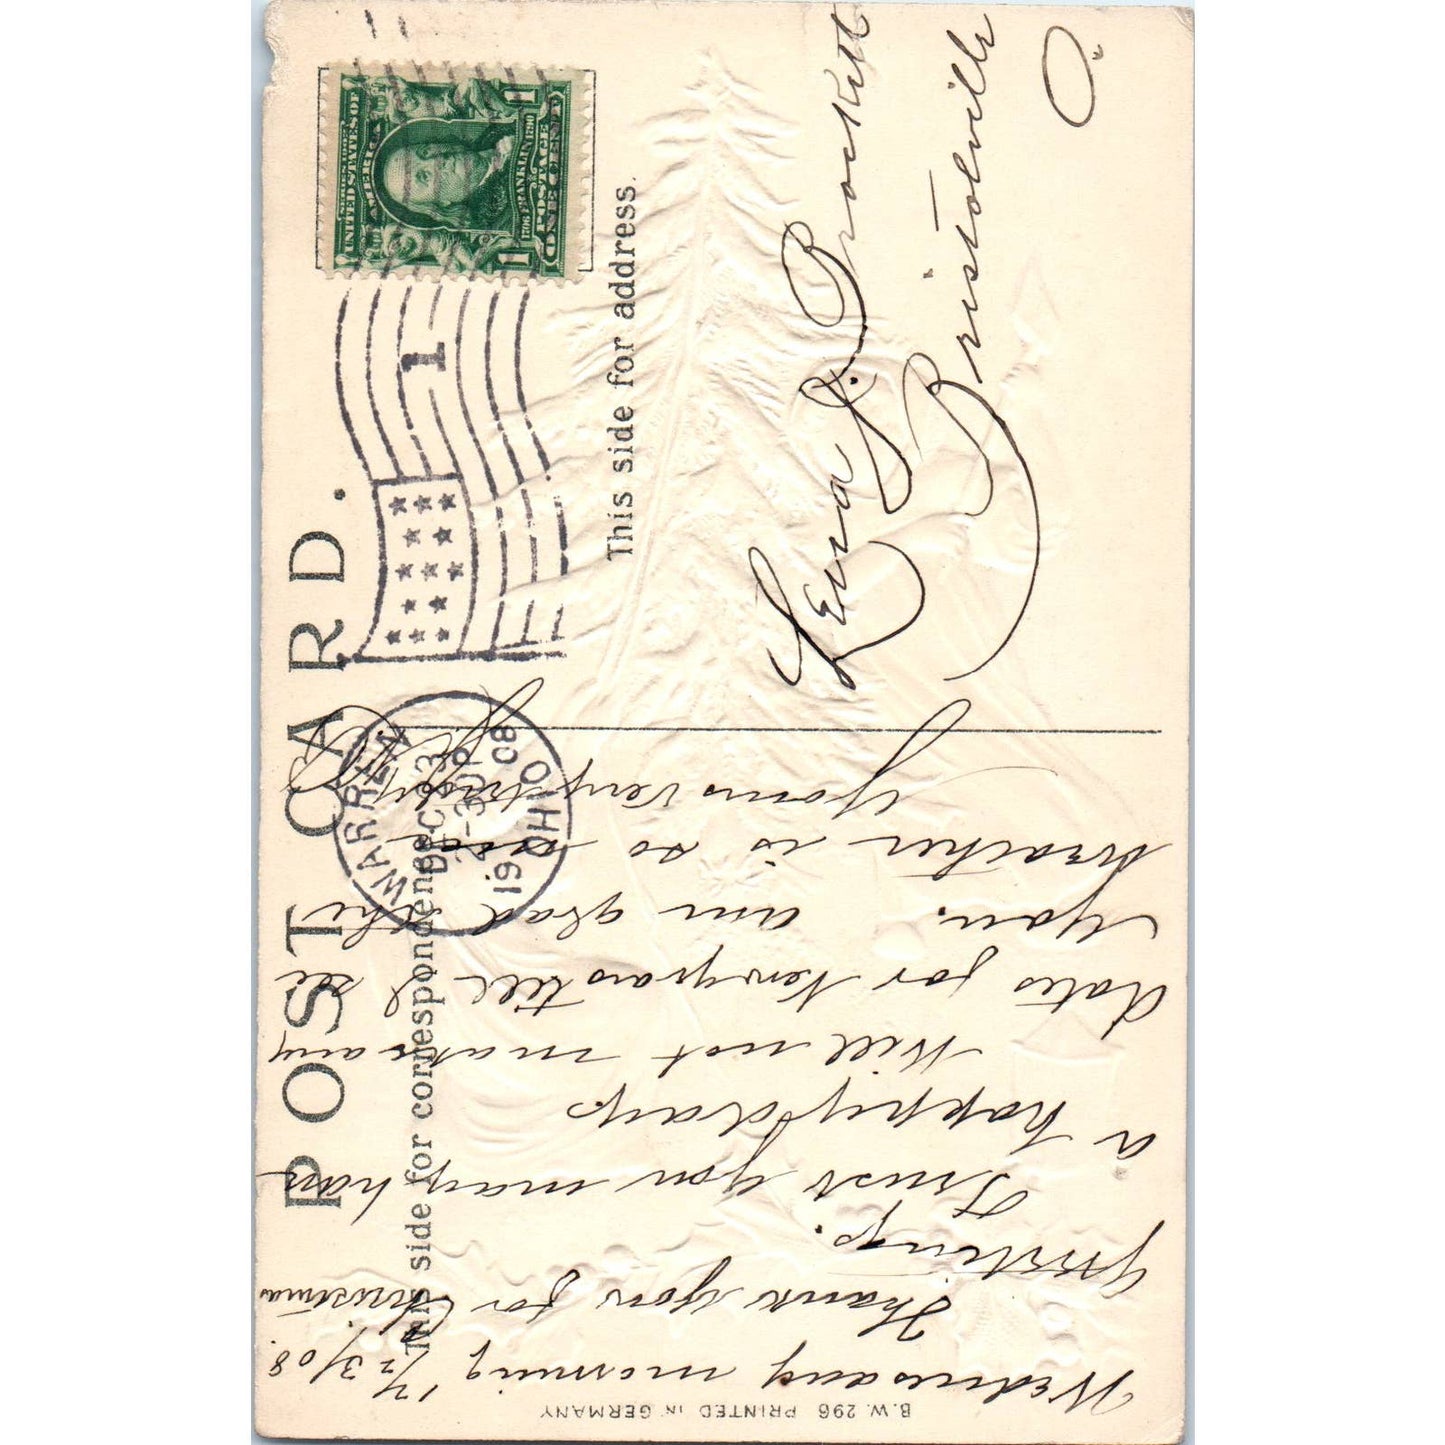 POST CARD.
This side for correspondence.
This side for address.
SERIES 1902
UNITED STATES OF
AMERICA
1706 FRANKLIN 1790
POSTAGE
ONE CENT
1
1
1
WARREN
DEC 23
2-30P
1908
OHIO
Wednesday morning 12/23/08.
Thank you for Christmas
greeting.
Trust you may have
a happy day.
Will not make any
dates for Newyears till I see
you. am glad the
weather is so good
Yours very truly
Lena J. Brockett
Bristolville
O.
B.W. 296 PRINTED IN GERMANY